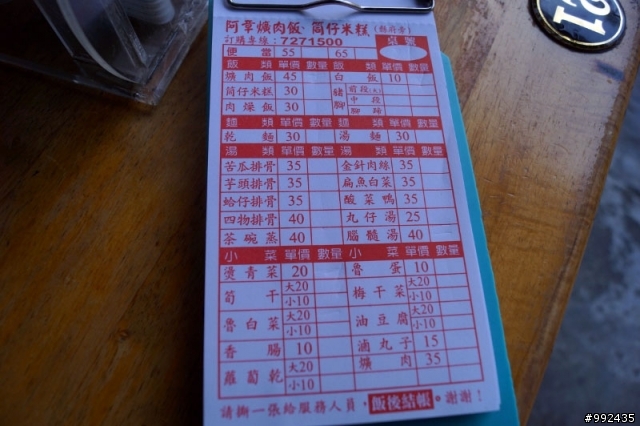 阿章爌肉飯·筒仔米糕
訂購專線：7271500 桌號
便當 55 65
飯類 單價 數量 飯類 單價 數量
爌肉飯 45 白飯 10
筒仔米糕 30 豬腳 前段(大)
中段
肉燥飯 30 腳蹄
麵類 單價 數量 麵類 單價 數量
乾麵 30 湯麵 30
湯類 單價 數量 湯類 單價 數量
苦瓜排骨 35 金針肉絲 35
芋頭排骨 35 扁魚白菜 35
蛤仔排骨 35 酸菜鴨 35
四物排骨 40 丸仔湯 25
茶碗蒸 40 腦髓湯 40
小菜 單價 數量 小菜 單價 數量
燙青菜 20 魯蛋 10
筍干 大20 小10 梅干菜 大20 小10
魯白菜 大20 小10 油豆腐 大20 小10
香腸 10 滷丸子 15
蘿蔔乾 大20 小10 爌肉 35
請撕一張給服務人員，飯後結帳。謝謝！
21
#992435